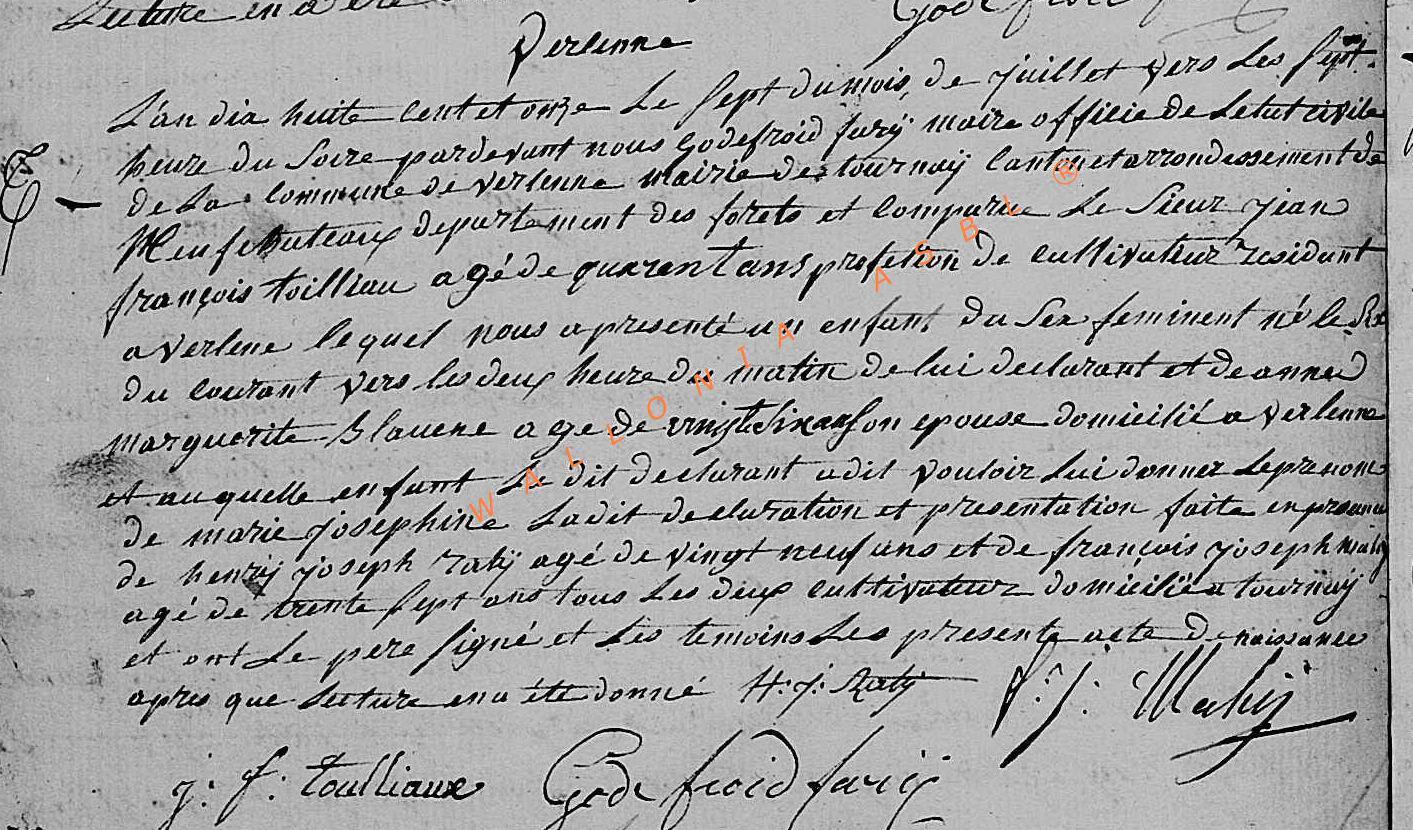 Lecture en a été
Godefroid
Verlenne
L'an dix huite cent et onze Le sept du mois, de juillet vers Les sept
heure du Soire pardevant nous Godefroid fury maire officie de Letat civile
de La commune de verlenne mairie de tournaÿ Canton et arrondessement de
Neufchateaux departement des forets et comparue Le Sieur jean
françois toilliau agé de quarent ans profession de cultivateur residant
a verlene lequel nous a presenté un enfant du Sex feminent né le Six
du courant vers les deux heure du matin de lui declarant et de anne
marguerite Blauene age de vingt Six ans son epouse domicilié a verlenne
et auquelle enfant Le dit declarant a dit vouloir Lui donner Leprenom
de marie josephine Ladit declaration et presentation faite en presence
de henrÿ joseph ratÿ agé de vingt neuf ans et de françois joseph mahÿ
agé de trente sept ans tous Les deux cultivateur domicilié a tournaÿ
et ont Le pere signé et Les temoins Les presente acte de naissance
apres que Lecture en a été donné H: j: Ratÿ f: j: Mahÿ
j: f: toulliaux Godefroid furiÿ
WALLONIA ASBL ®